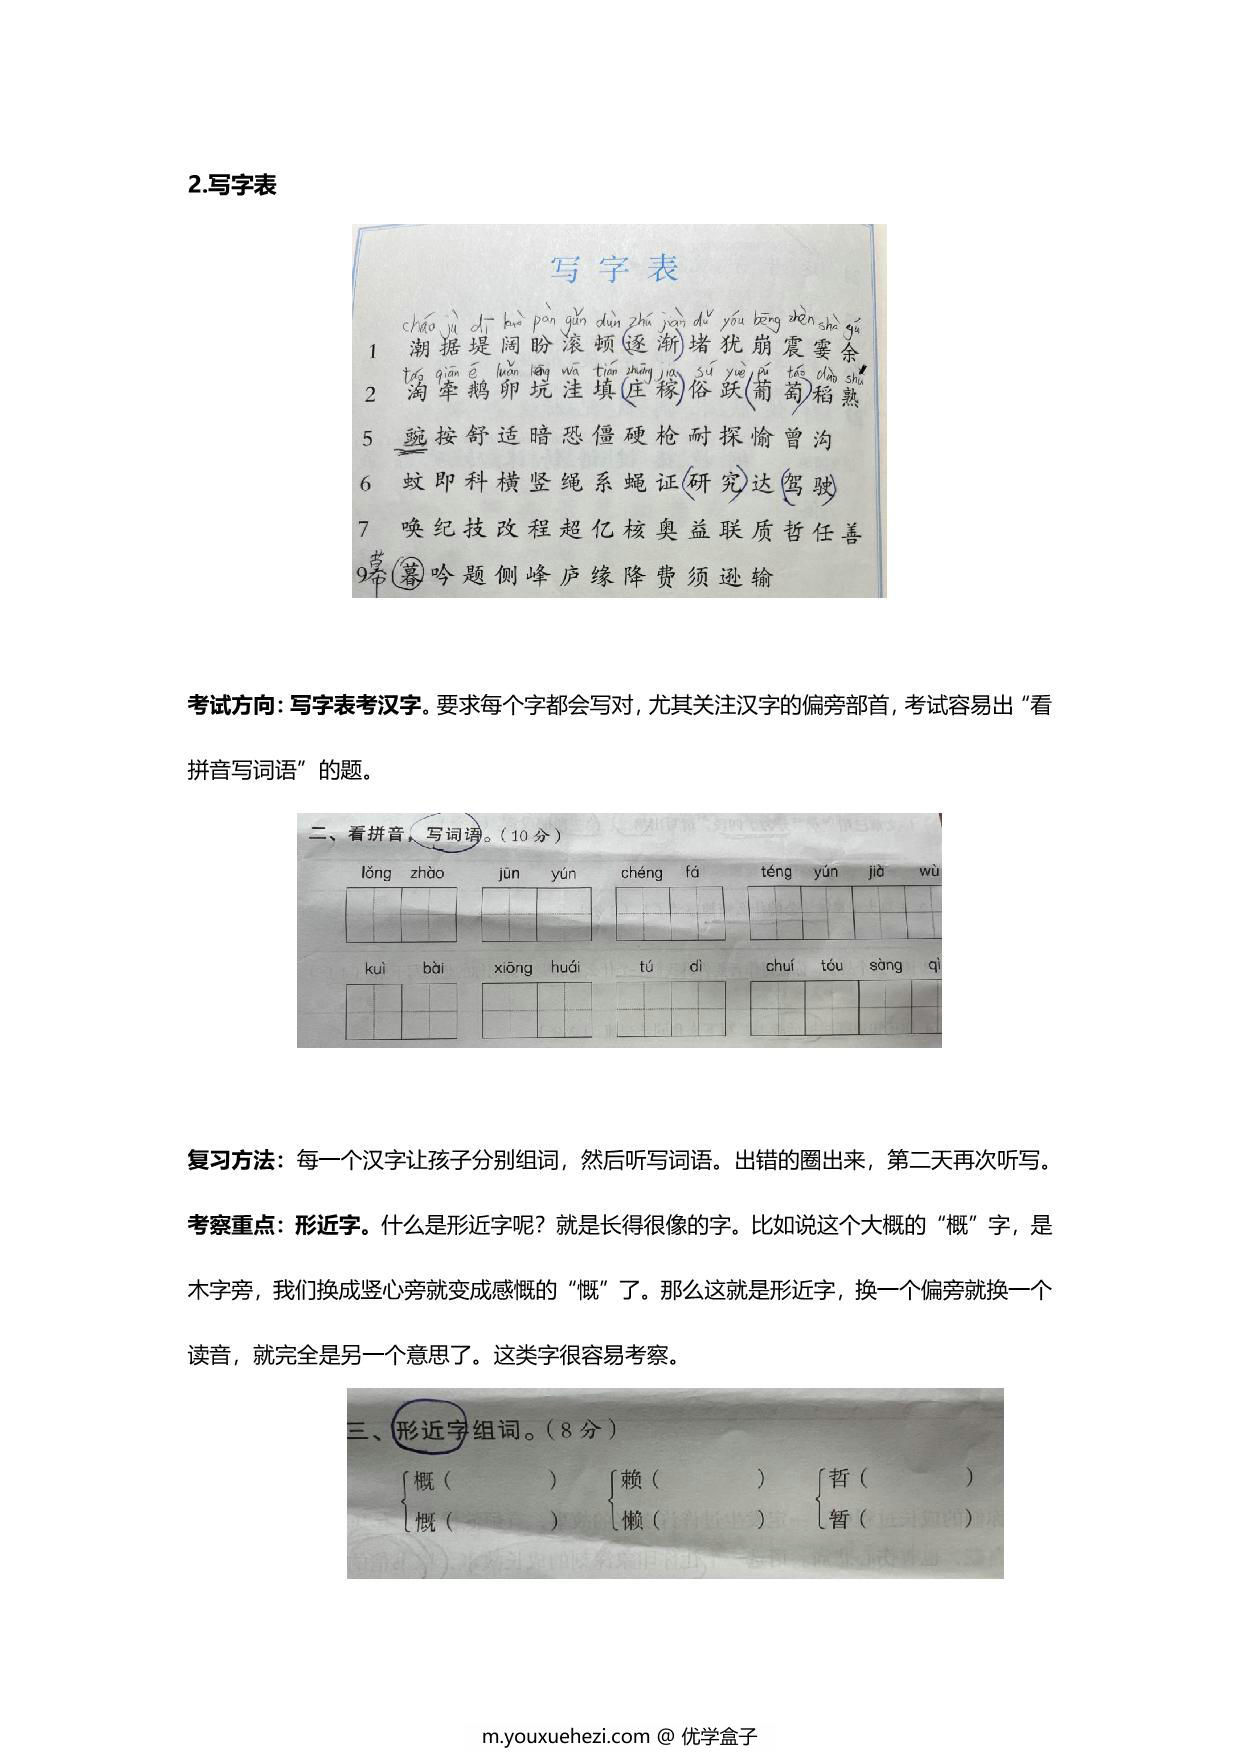 2.写字表
写字表
cháo jù dī kuò pàn gǔn dùn zhú jiàn dǔ yóu bēng zhèn shà
1 潮据堤阔盼滚顿逐渐堵犹崩震霎余
táo qiān é luǎn kēng wā tián zhuāng jia sú yuè pú táo dào shú
2 淘牵鹅卵坑洼填庄稼俗跃葡萄稻熟
5 豌按舒适暗恐僵硬枪耐探愉曾沟
6 蚊即科横竖绳系蝇证研究达驾驶
7 唤纪技改程超亿核奥益联质哲任善
幕
9 暮吟题侧峰庐缘降费须逊输
考试方向：写字表考汉字。要求每个字都会写对，尤其关注汉字的偏旁部首，考试容易出“看
拼音写词语”的题。
二、看拼音，写词语。（10分）
lǒng zhào jūn yún chéng fá téng yún jià wù
kuì bài xiōng huái tú dì chuí tóu sàng qì
复习方法：每一个汉字让孩子分别组词，然后听写词语。出错的圈出来，第二天再次听写。
考察重点：形近字。什么是形近字呢？就是长得很像的字。比如说这个大概的“概”字，是
木字旁，我们换成竖心旁就变成感慨的“慨”了。那么这就是形近字，换一个偏旁就换一个
读音，就完全是另一个意思了。这类字很容易考察。
三、形近字组词。（8分）
概（ ） 赖（ ） 哲（ ）
慨（ ） 懒（ ） 暂（ ）
m.youxuehezi.com @ 优学盒子